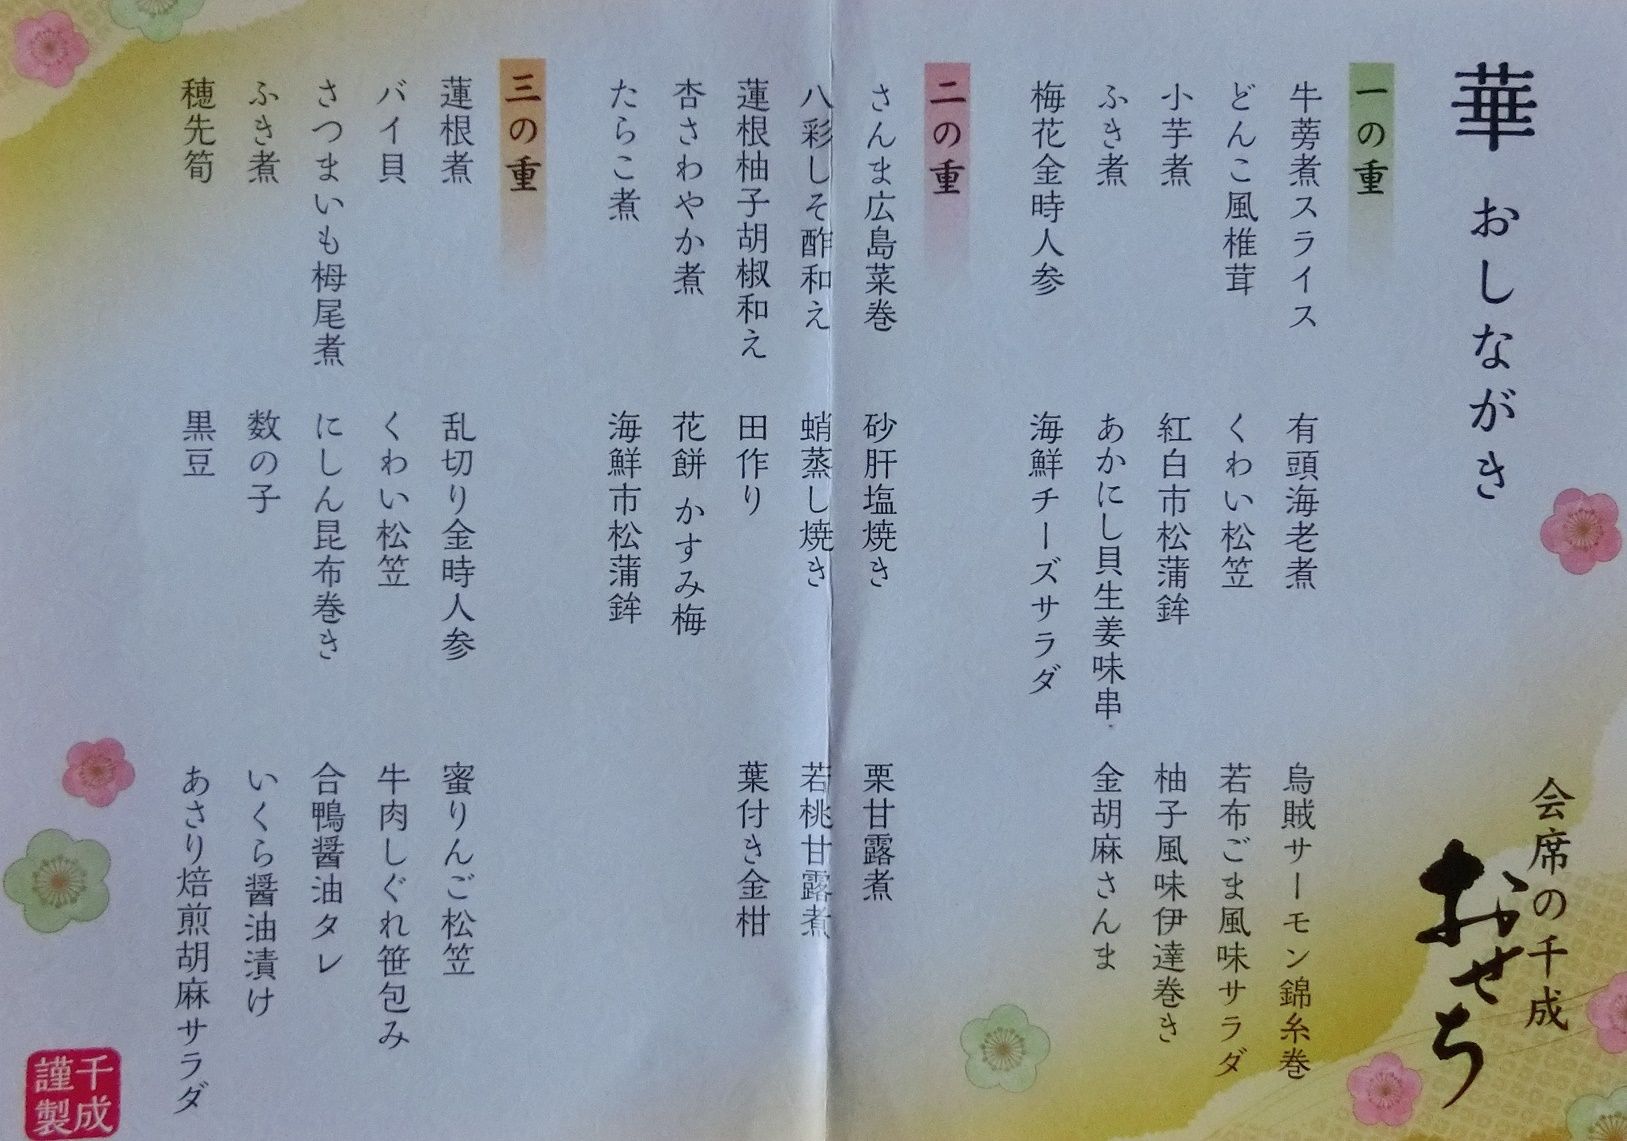 華 おしながき
会席の千成
おせち
一の重
牛蒡煮スライス
どんこ風椎茸
小芋煮
ふき煮
梅花金時人参
有頭海老煮
くわい松笠
紅白市松蒲鉾
あかにし貝生姜味串
海鮮チーズサラダ
烏賊サーモン錦糸巻
若布ごま風味サラダ
柚子風味伊達巻き
金胡麻さんま
二の重
さんま広島菜巻
八彩しそ酢和え
蓮根柚子胡椒和え
杏さわやか煮
たらこ煮
砂肝塩焼き
蛸蒸し焼き
田作り
花餅 かすみ梅
海鮮市松蒲鉾
栗甘露煮
若桃甘露煮
葉付き金柑
三の重
蓮根煮
バイ貝
さつまいも栂尾煮
ふき煮
穂先筍
乱切り金時人参
くわい松笠
にしん昆布巻き
数の子
黒豆
蜜りんご松笠
牛肉しぐれ笹包み
合鴨醤油タレ
いくら醤油漬け
あさり焙煎胡麻サラダ
千成
謹製